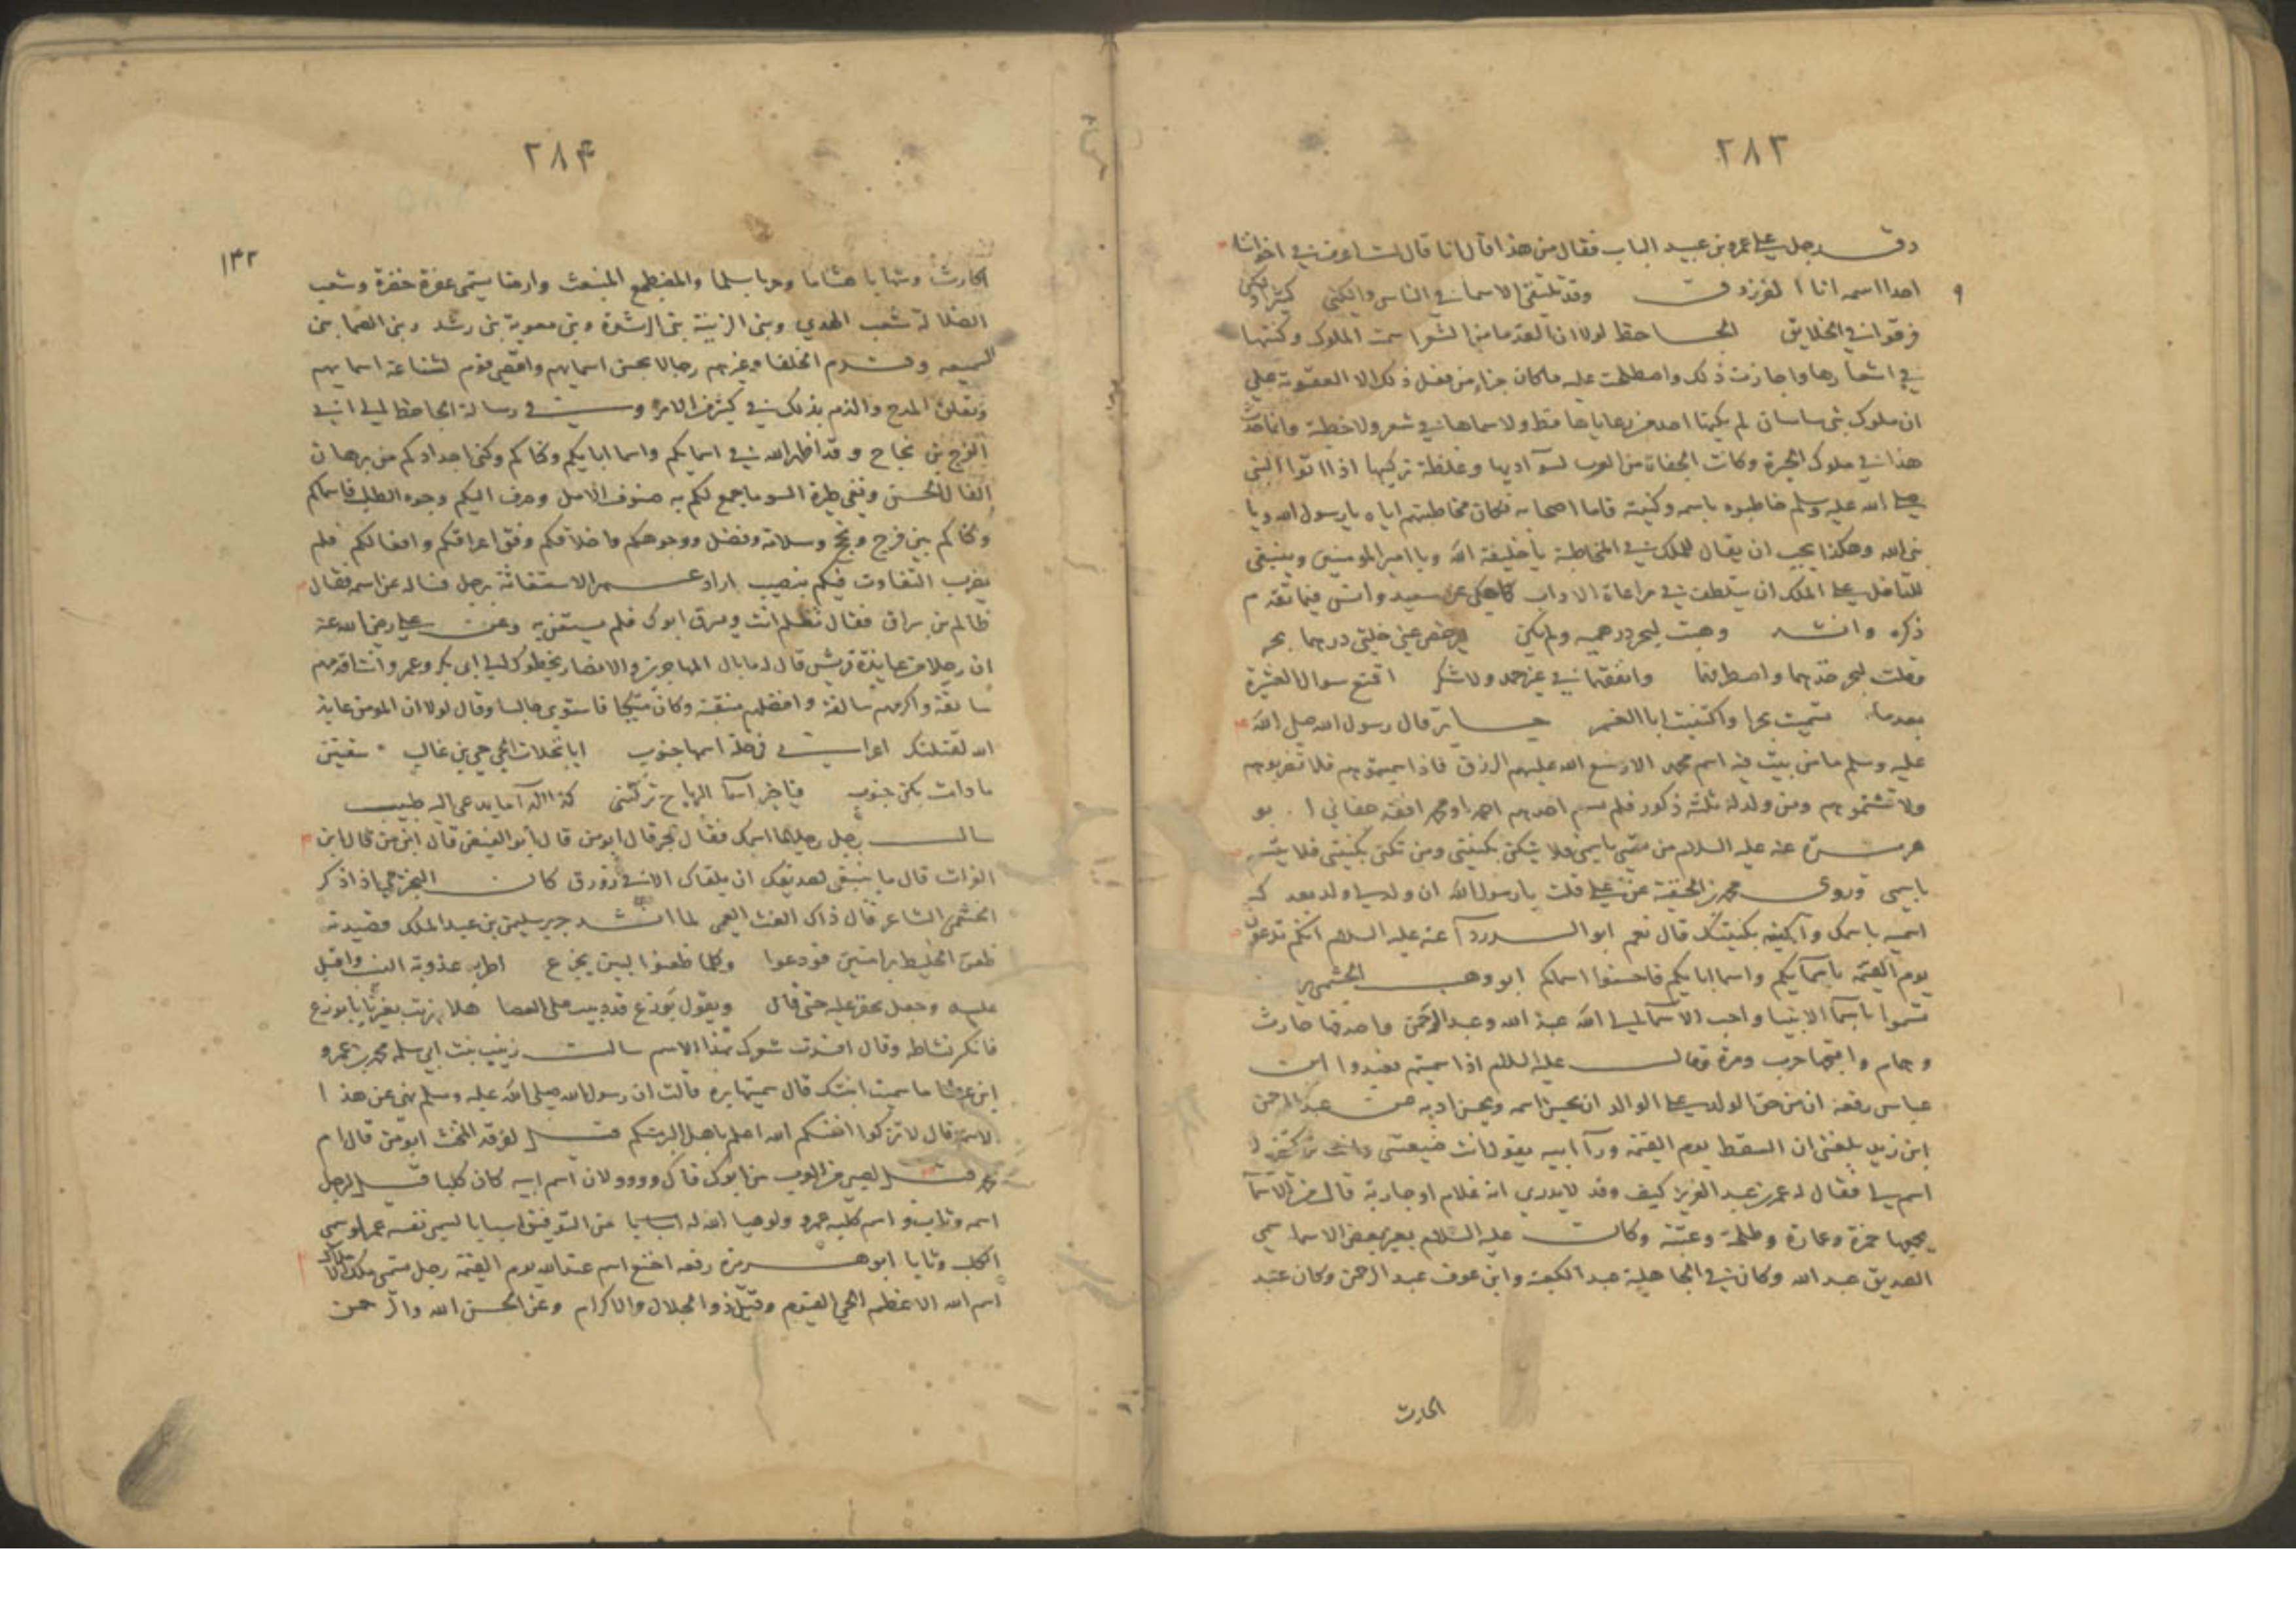 ٢٨٣
دق رجل على عمرو بن عبيد الباب فقال من هذا قال انا قال لست اعرف في اخواننا
احدا اسمه انا الفرزدق وقد تلتقى الاسما في الناس والكنى كثيرا ولكن
فرقوا في الخلايق الجاحظ لولا ان القدما من الشعرا سمت الملوك وكنتها
في اشعارها واجازت ذلك واصطلحت عليه ماكان جزاء من فعل ذلك الا العقوبة على
ان ملوك بنى ساسان لم يكنها احد من رعاياها قط ولا سماها في شعر ولا خطبة وانما حدث
هذا في ملوك الحيرة وكانت الجفاة من العرب لسوء ادبها وغلظة تركيبها اذا اتوا النبى
صلى الله عليه وسلم خاطبوه باسمه وكنيته فاما اصحابه فكان مخاطبتهم اياه يا رسول الله ويا
نبى الله وهكذا يجب ان يقال للملك في المخاطبة يا خليفة الله ويا امير المومنين وينبغى
للداخل على الملك ان يتلطف في مراعاة الادب كما حكى عن سعيد وانس فيما تقدم
ذكره وانشد وهبت لبحر درهميه ولم يكن ليرخص عنى خلتى درهما بحر
وقلت لبحر خذهما واصطرفهما وانفقهما في غير حمد ولا شكر اتمنع سوال العشيرة
بعدما تسميت بحرا واكتنيت ابا الغمر جابر قال رسول الله صلى الله
عليه وسلم ما من بيت فيه اسم محمد الا وسع الله عليهم الرزق فاذا سميتموهم فلا تضربوهم
ولا تشتموهم ومن ولد له ثلثة ذكور فلم يسم احدهم احمد او محمد فقد جفاني ابو
هريرة عنه عليه السلام من تسمى باسمى فلا يتكن بكنيتى ومن تكنى بكنيتى فلا يتسم
باسمى وروى محمد بن الحنفية عن على قلت يا رسول الله ان ولد لى ولد بعدك
اسميه باسمك واكنيه بكنيتك قال نعم ابو الدرداء عنه عليه السلام انكم تدعون
يوم القيمة باسمايكم واسما ابايكم فاحسنوا اسماكم ابو وهب الجشمى
تسموا باسما الانبيا واحب الاسما الى الله عبد الله وعبد الرحمن واصدقها حارث
وهمام واقبحها حرب ومرة وقال عليه السلام اذا سميتم فعبدوا ابن
عباس رفعه ان من حق الولد على الوالد ان يحسن اسمه ويحسن ادبه عن عبد الرحمن
ابن زيد بلغنى ان السقط يوم القيمة وراء ابيه يقول انت ضيعتنى وانت تركتنى لا
اسم لى فقال له عمر بن عبد العزيز كيف وقد لا يدرى انه غلام او جارية قال من الاسما
يجمعها حمزة وعمارة وطلحة وعتبة وكان عليه السلام يغير بعض الاسما سمى
الصديق عبد الله وكان في الجاهلية عبد الكعبة وابن عوف عبد الرحمن وكان عبد
الحارث
٢٨۴
١۴٢
الحارث وشهابا هشاما وحربا سلما والمضطجع المنبعث وارضا يسمى عفرة خضرة وشعب
الضلالة شعب الهدى وبنى الزنية بنى الرشدة وبنى معوية بنى رشد وبنى الصما بنى
السميعه وقدم الخلفا وغيرهم رجالا بحسن اسمايهم واقصى قوم لشناعة اسمايهم
وتعلق المدح والذم بذلك في كثير من الامر وفي رسالة الجاحظ الى ابى
الفرج بن نجاح وقد اظهر الله في اسمايكم واسما ابايكم وكناكم وكنى اجدادكم من برهان
الفال الحسن ونفى طيرة السو ما جمع لكم به صنوف الامل وصرف اليكم وجوه الطلب فاسماكم
وكناكم بين فرج ونجح وسلامة وفضل ووجوهكم واخلاقكم وفق اعراقكم وافعالكم فلم
يضرب التفاوت فيكم بنصيب اراد عمر الاستعانة برجل فساله عن اسمه فقال
ظالم بن سراق فقال تظلم انت وسرق ابوك فلم يستعن به وعن على رضى الله عنه
ان رجلا من عايذة قريش قال له ما بال المهاجرين والانصار تخطوك الى ابى بكر وعمر وانت اقدمهم
سابقة واكرمهم سالفة وافضلهم منقبة وكان متكيا فاستوى جالسا وقال لولا ان المومن عايذ
الله لقتلتك اعرابى في رحلة اسمها جنوب ايا نخلات الحى حى بن غالب سقيتن
ما دامت بكن جنوب فياخير اسما الرياح تركتنى كذا الداء ما يدعى اليه طبيب
سال رجل رجلا ما اسمك فقال بحر قال ابو من قال ابو الفيض قال ابن من قال ابن
الفرات قال ما ينبغى لصديقك ان يلقاك الا في زورق كان البحترى اذا ذكر
الخثعمى الشاعر قال ذاك الغث العمى لما انشد جرير سليمن بن عبد الملك قصيدته
ظعن الخليط برامتين فودعوا وكلما ظعنوا لبين تجزع اطربه عذوبة النسب واقبل
عليه وجعل يحفز عليه حتى قال ويقول بوزع قد دببت على العصا هلا هزئت بغيرنا يا بوزع
فانكر نشاطه وقال افسدت شعرك بهذا الاسم سالت زينب بنت ابى سلمه محمد بن عمرو
ابن عطا ما سميت ابنتك قال سميتها برة قالت ان رسول الله صلى الله عليه وسلم نهى عن هذا
الاسم قال لا تزكوا انفسكم الله اعلم باهل البر منكم قيل لفرقد المخنث ابو من قال ام
محمد قيل لصبى من العرب من ابوك قال وووو لان اسم ابيه كان كلبا قيل لرجل
اسمه وثاب واسم كلبه عمرو ولو هيا الله له اسبابا من التوفيق اسبابا لسمى نفسه عمرا وسمى
الكلب وثابا ابو هريرة رفعه اخنع اسم عند الله يوم القيمة رجل تسمى ملك الاملاك
اسم الله الاعظم الحى القيوم وقيل ذو الجلال والاكرام وعن الحسن الله والرحمن